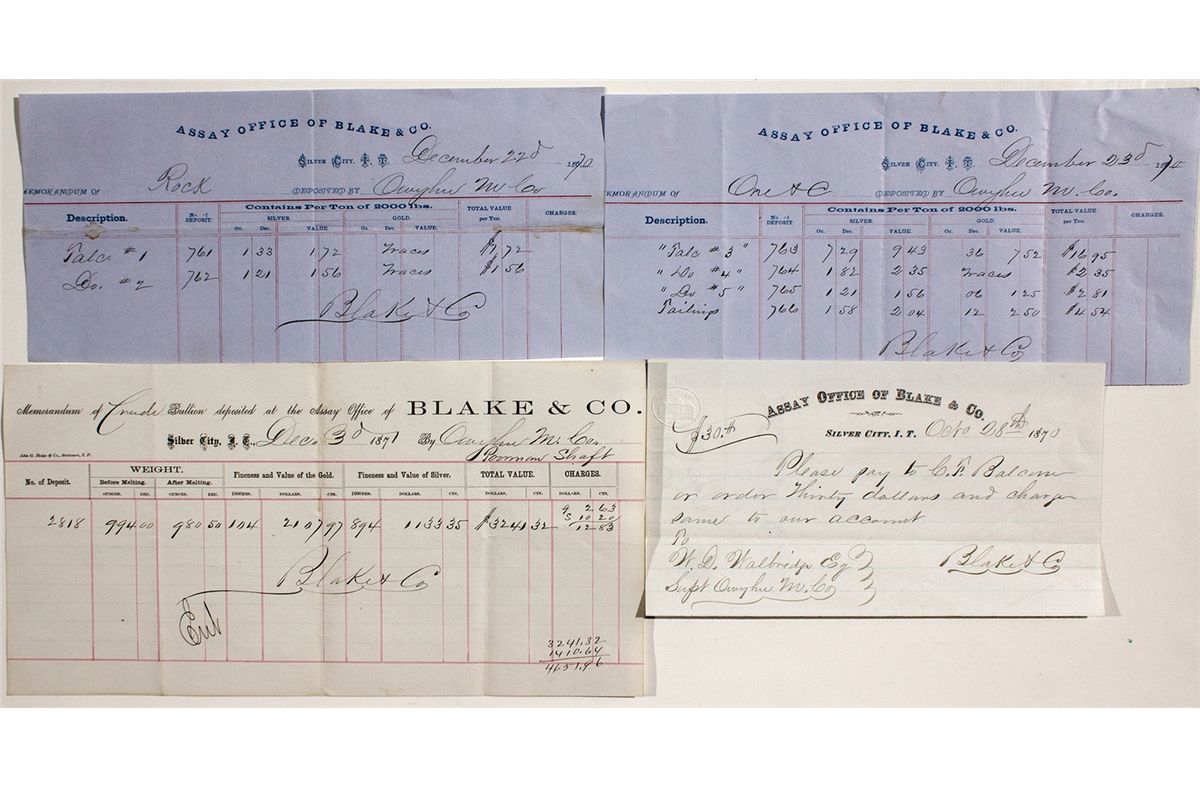 ASSAY OFFICE OF BLAKE & CO.
SILVER CITY, I. T. December 22d 1870
MEMORANDUM OF Rock DEPOSITED BY Owyhee M. Co
Description. No. of DEPOSIT. Contains Per Ton of 2000 lbs. TOTAL VALUE per Ton. CHARGES.
SILVER. GOLD.
Oz. Dec. VALUE. Oz. Dec. VALUE.
Talc #1 761 1 33 1 72 Traces $1 72
Do. #2 762 1 21 1 56 Traces $1 56
Blake & Co
ASSAY OFFICE OF BLAKE & CO.
SILVER CITY, I. T. December 23d 1870
MEMORANDUM OF DEPOSITED BY Owyhee M. Co.
Description. No. of DEPOSIT. Contains Per Ton of 2000 lbs. TOTAL VALUE per Ton. CHARGES.
SILVER. GOLD.
Oz. Dec. VALUE. Oz. Dec. VALUE.
"Talc #3" 763 7 29 9 43 36 7 52 $16 95
"Do #4" 764 1 82 2 35 Traces $2 35
"Do #5" 765 1 21 1 56 06 1 25 $2 81
Tailings 766 1 58 2 04 12 2 50 $4 54
Blake & Co
Memorandum of Crude Bullion deposited at the Assay Office of BLAKE & CO.
Silver City, I. T., Decr 3d 1871 By Owyhee M. Co.
Poorman Shaft
No. of Deposit. WEIGHT. Fineness and Value of the Gold. Fineness and Value of Silver. TOTAL VALUE. CHARGES.
Before Melting. After Melting.
OUNCES. DEC. OUNCES. DEC. 1000THS. DOLLARS. CTS. 1000THS. DOLLARS. CTS. DOLLARS. CTS. DOLLARS. CTS.
G 2 63
S 10 20
2818 994 00 980 50 104 2107 97 894 1133 35 $3241 32 12 83
Blake & Co
Ent
3241.32
1410.64
4651.96
ASSAY OFFICE OF BLAKE & CO.
$30.00
SILVER CITY, I. T. Octo 28th 1870
Please pay to C. F. Balcom
or order Thirty dollars and charge
same to our account
To
W. D. Walbridge Eq Blake & Co
Supt Owyhee M. Co